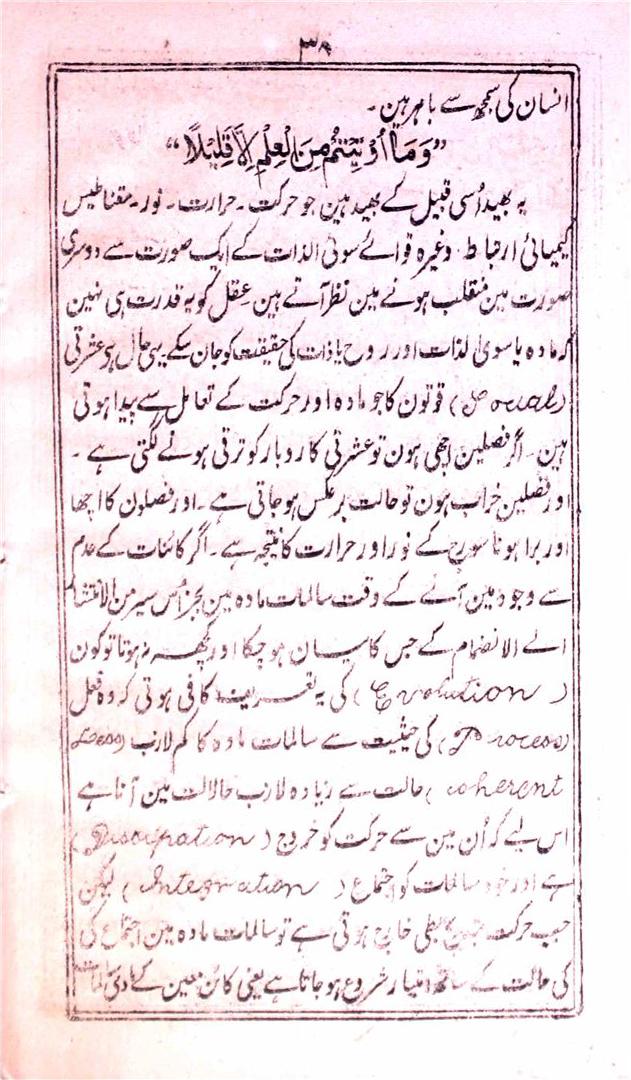 ۳۸
انسان کی سمجھ سے باہر ہین۔
”وَمَا اُوْتِیْتُمْ مِنَ الْعِلْمِ اِلَّا قَلِیْلًا“
یہ بھید اُسی قبیل کے بھید ہین جو حرکت۔ حرارت۔ نور۔ مقناطیس
کیمیائی ارتباط۔ وغیرہ قوائے سوی الذات کے ایک صورت سے دوسری
صورت مین منقلب ہونے مین نظر آتے ہین عقل کو یہ قدرت ہی نہین
کہ مادہ یا سوی الذات اور روح یا ذات کی حقیقت کو جان سکے یہی حال ہی عشرتی
(Social) قوتون کا جو مادہ اور حرکت کے تعامل سے پیدا ہوتی
ہین۔ اگر فصلین اچھی ہون تو عشرتی کاروبار کو ترقی ہونے لگتی ہے۔
اور فصلین خراب ہون تو حالت برعکس ہو جاتی ہے۔ اور فصلون کا اچھا
اور برا ہونا سورج کے نور اور حرارت کا نتیجہ ہے۔ اگر کائنات کے عدم
سے وجود مین آنے کے وقت سالمات مادہ مین بجز اُس سیر من الانتشار
الے الانضمام کے جس کا بیان ہو چکا اور کچھ نہ ہوتا تو کون
(Evolution) کی یہ تعریف کافی ہوتی کہ وہ فعل
(Process) کی حیثیت سے سالمات مادہ کا کم لازب (Less
coherent) حالت سے زیادہ لازب حالات مین آنا ہے
اس لیے کہ اُن مین سے حرکت کو خروج (Dissipation)
ہے اور خود سالمات کو اجتماع (Integration) لیکن
جب حرکت خارج ہوتی ہے تو سالمات مادہ مین اجتماع کی
کی حالت کے ساتھ امتیاز شروع ہو جاتا ہے یعنی کائن معین کے